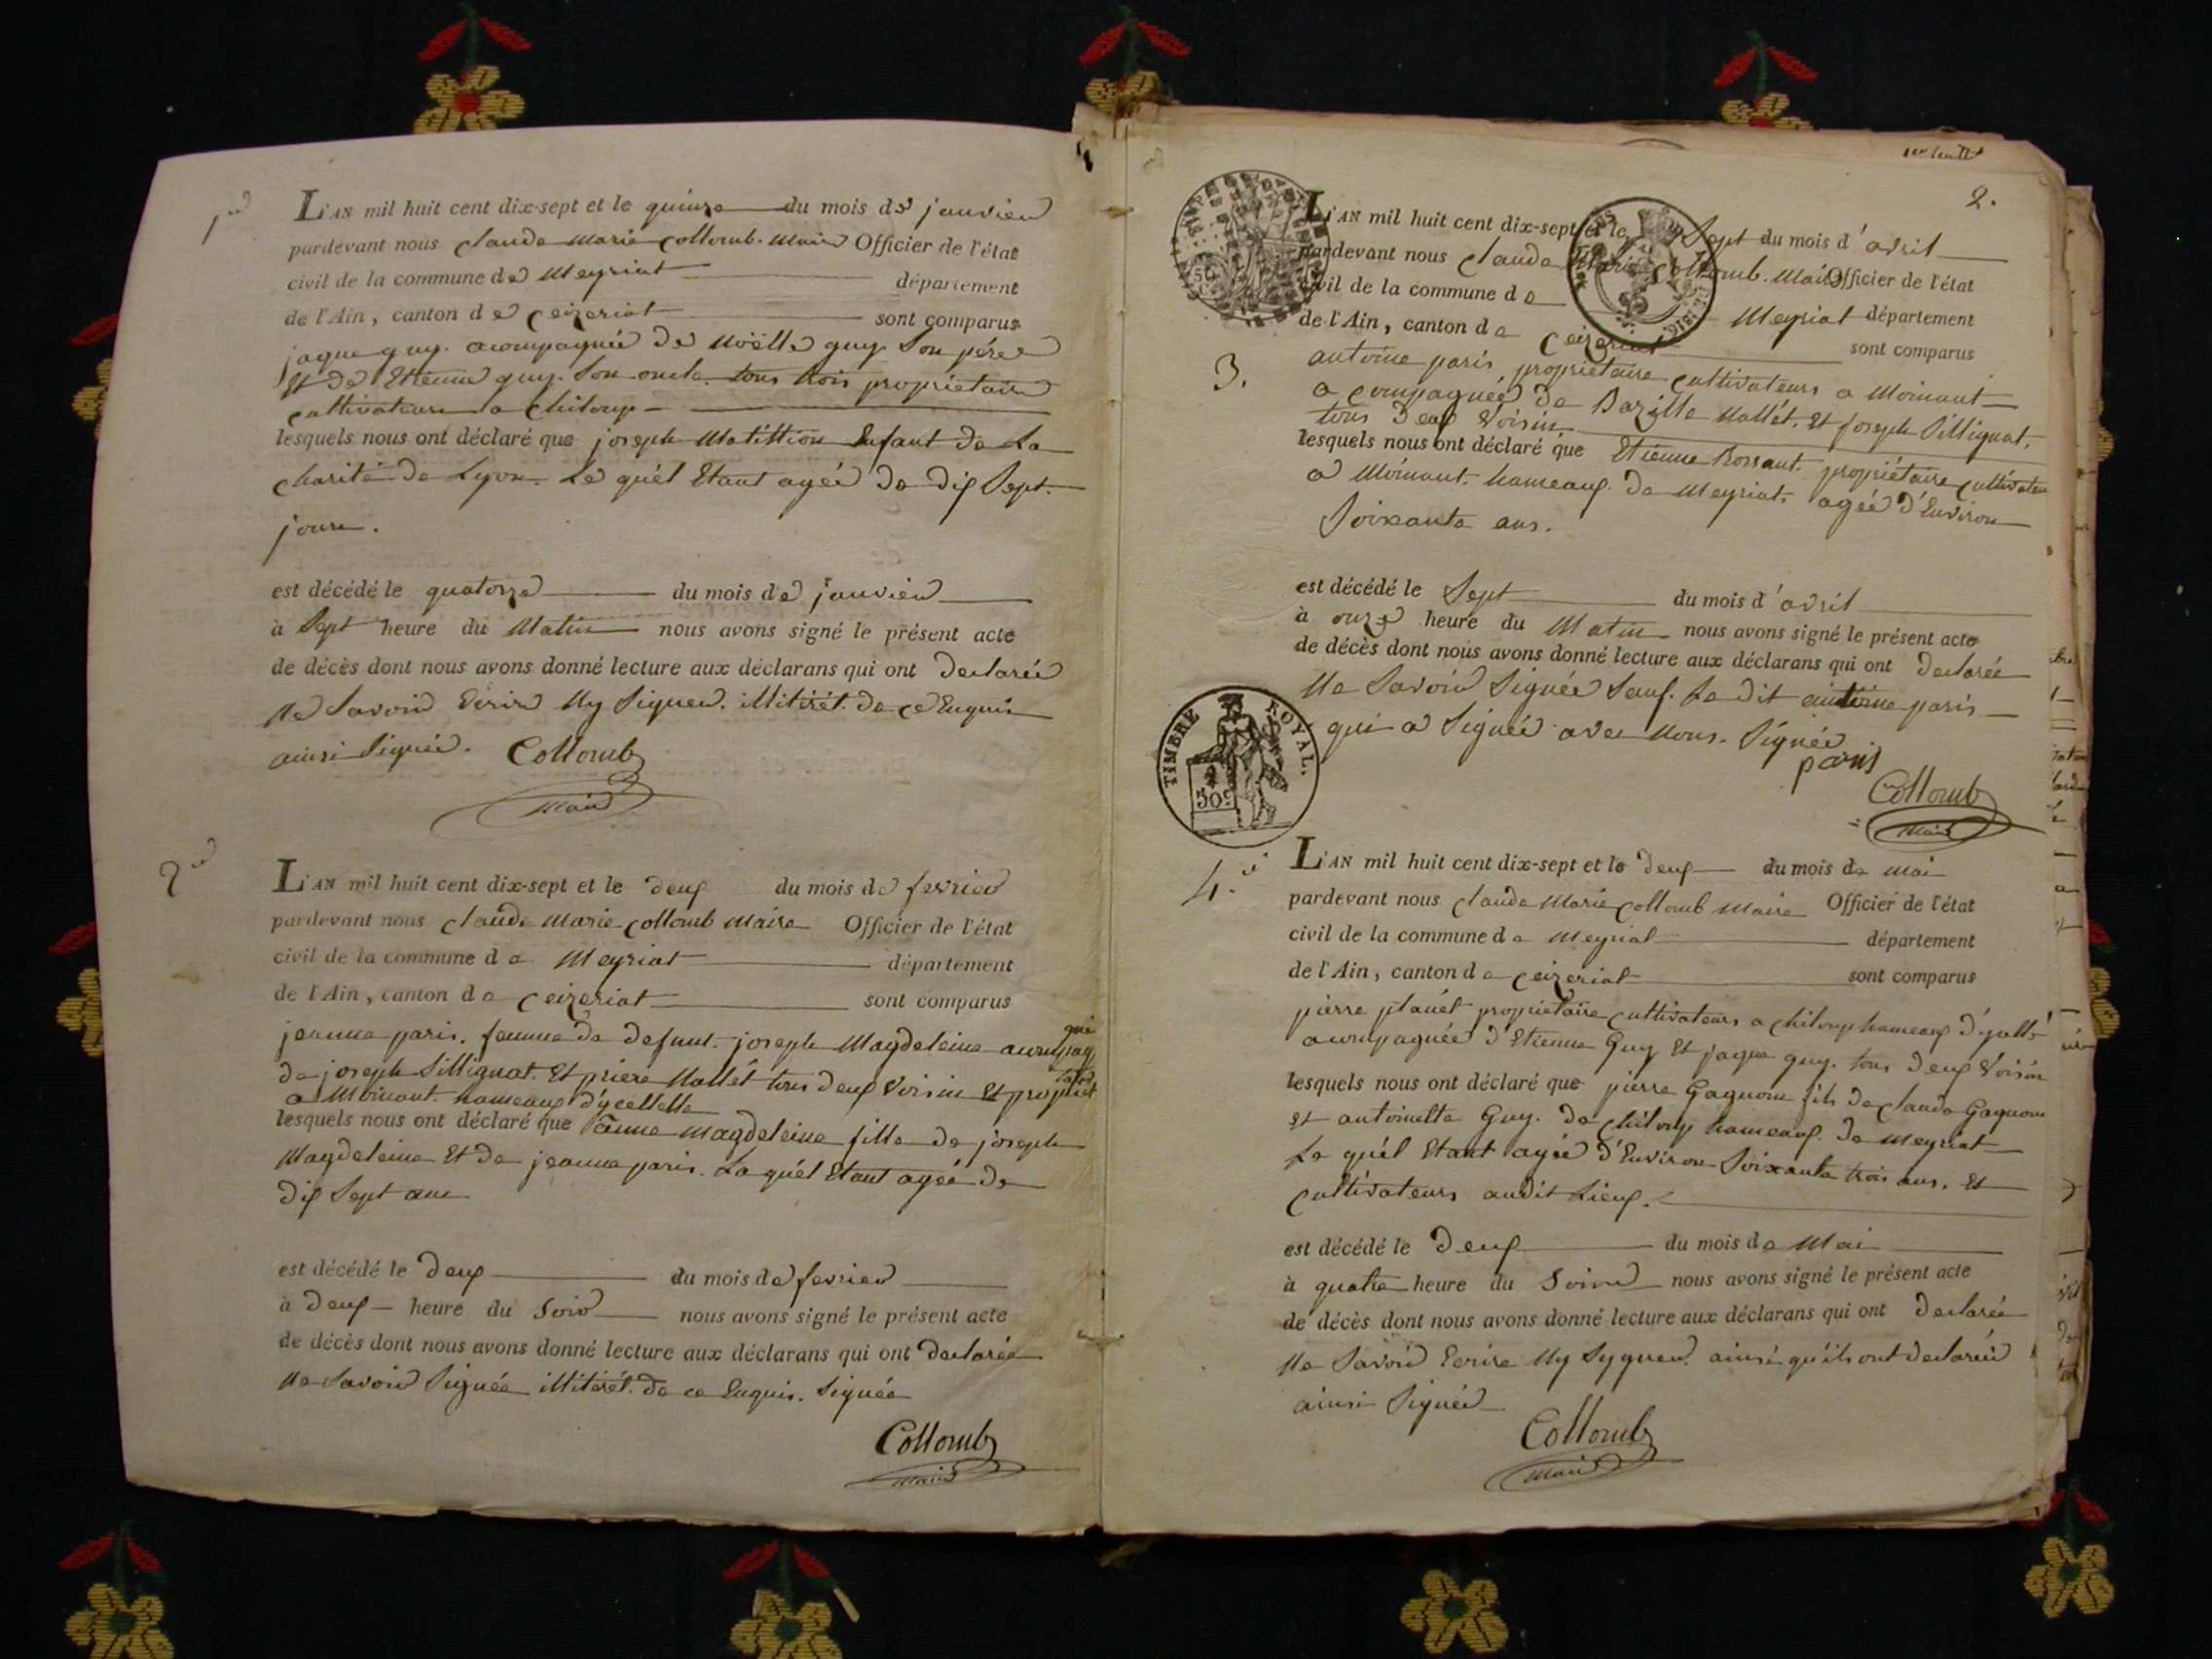 1er
L'AN mil huit cent dix-sept et le quinze du mois de janvier
pardevant nous Claude Marie Collomb. Maire Officier de l'état
civil de la commune de Meyriat département
de l'Ain, canton de Ceizeriat sont comparus
jaque guy. acompagnée de Noëlle guy son pére
Et de Etienne guy. Son oncle. tous trois propriétaire
cultivateurs a Chiloup
lesquels nous ont déclaré que joseph Enfant de La
charité de Lyon. Le quél Etant agée de dix Sept.
jours.
est décédé le quatorze du mois de janvier
à Sept heure du Matin nous avons signé le présent acte
de décès dont nous avons donné lecture aux déclarans qui ont declarée
Ne Savoir Ecrire Ny Signer. illitérét. de ce Enquis
ainsi Signée. Collomb
Maire
2
L'AN mil huit cent dix-sept et le deux du mois de fevrier
pardevant nous Claude Marie Collomb Maire Officier de l'état
civil de la commune de Meyriat département
de l'Ain, canton de Ceizeriat sont comparus
jeanne paris. femme de defunt. joseph Magdeleine acompagnée
de joseph Pillignat. Et piere Mallét tous deux Voisin Et propriét
a Moinant. hameaux d'ycellelle
lesquels nous ont déclaré que anne Magdeleine fille de joseph
Magdeleine Et de jeanne paris. La quél Etant agée de
dix Sept ans
est décédé le deux du mois de fevrier
à deux heure du Soir nous avons signé le présent acte
de décès dont nous avons donné lecture aux déclarans qui ont declarée
Ne Savoir Signée illitérét. de ce Enquis. Signée
Collomb
Maire
1er feuillet
2.
3.
L'AN mil huit cent dix-sept et le Sept du mois d'avril
pardevant nous Claude Marie Collomb. Maire Officier de l'état
civil de la commune de Meyriat département
de l'Ain, canton de Ceizeriat sont comparus
antoine paris, propriétaire cultivateurs a Moinant
acompagnée de Bazille Mallét. Et joseph Pillignat.
tous deux Voisin
lesquels nous ont déclaré que Etienne Rossant. propriétaire cultivateur
a Moinant. hameaux. de Meyriat. agée d'Environ
Soixante ans.
est décédé le Sept du mois d'avril
à onze heure du Matin nous avons signé le présent acte
de décès dont nous avons donné lecture aux déclarans qui ont declarée
Ne Savoir Signée Sauf. Le dit antoine paris
qui a Signée avec Nous. Signée
paris
Collomb
Maire
TIMBRE ROYAL.
50c
4.
L'AN mil huit cent dix-sept et le deux du mois de Mai
pardevant nous Claude Marie Collomb Maire Officier de l'état
civil de la commune de Meyriat département
de l'Ain, canton de Ceizeriat sont comparus
pierre planét propriétaire cultivateurs a Chiloup hameaux
acompagnée d'Etienne Guy Et jaque guy. tous deux Voisin
lesquels nous ont déclaré que pierre Gagnom fils de Claude Gagnom
Et antoinette Guy. de Chiloup hameaux. de Meyriat
Le quél Etant agée d'Environ Soixante trois ans. Et
cultivateurs audit Lieux.
est décédé le deux du mois de Mai
à quatre heure du Soire nous avons signé le présent acte
de décès dont nous avons donné lecture aux déclarans qui ont declarée
Ne Savoir Ecrire Ny Sygner. ainsi qu'ils ont declarée
ainsi Signée
Collomb
Maire